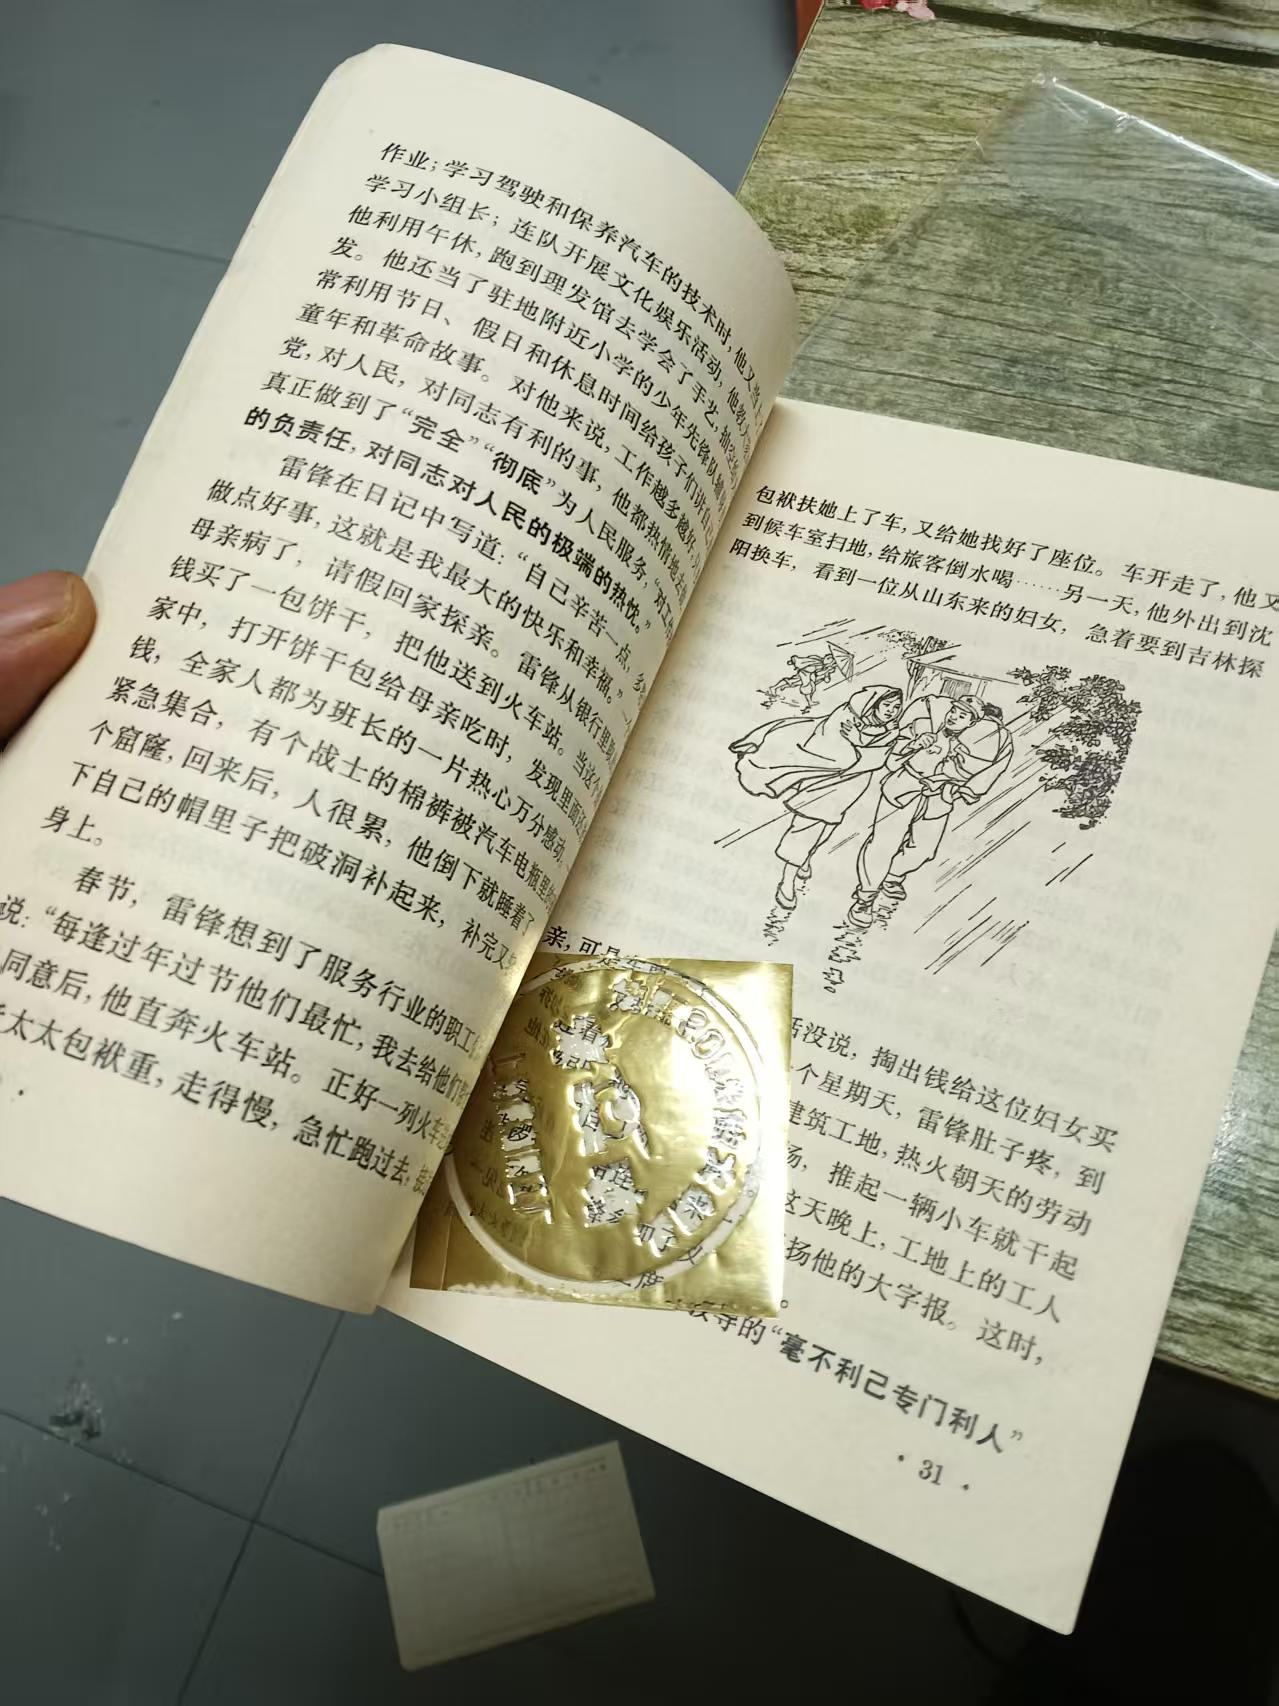 作业；学习驾驶和保养汽车的技术时，他又当上
学习小组长；连队开展文化娱乐活动，他教大家
他利用午休，跑到理发馆去学会了手艺，抽空给
发。他还当了驻地附近小学的少年先锋队辅导
常利用节日、假日和休息时间给孩子们讲自己
童年和革命故事。对他来说，工作越多越好，
党，对人民，对同志有利的事，他都热情地去
真正做到了“完全”“彻底”为人民服务，“对工作
的负责任，对同志对人民的极端的热忱。”
雷锋在日记中写道：“自己辛苦一点，多
做点好事，这就是我最大的快乐和幸福。”一
母亲病了，请假回家探亲。雷锋从银行里
钱买了一包饼干，把他送到火车站。当这个
家中，打开饼干包给母亲吃时，发现里面还
钱，全家人都为班长的一片热心万分感动。
紧急集合，有个战士的棉裤被汽车电瓶里的
个窟窿，回来后，人很累，他倒下就睡着了
下自己的帽里子把破洞补起来，补完又
身上。
春节，雷锋想到了服务行业的职工
说：“每逢过年过节他们最忙，我去给他们
同意后，他直奔火车站。正好一列火车
太太包袱重，走得慢，急忙跑过去，接
包袱扶她上了车，又给她找好了座位。车开走了，他又
到候车室扫地，给旅客倒水喝……另一天，他外出到沈
阳换车，看到一位从山东来的妇女，急着要到吉林探
亲，可是车
话没说，掏出钱给这位妇女买
个星期天，雷锋肚子疼，到
建筑工地，热火朝天的劳动
场，推起一辆小车就干起
这天晚上，工地上的工人
扬他的大字报。这时，
教导的“毫不利己专门利人”
·31·